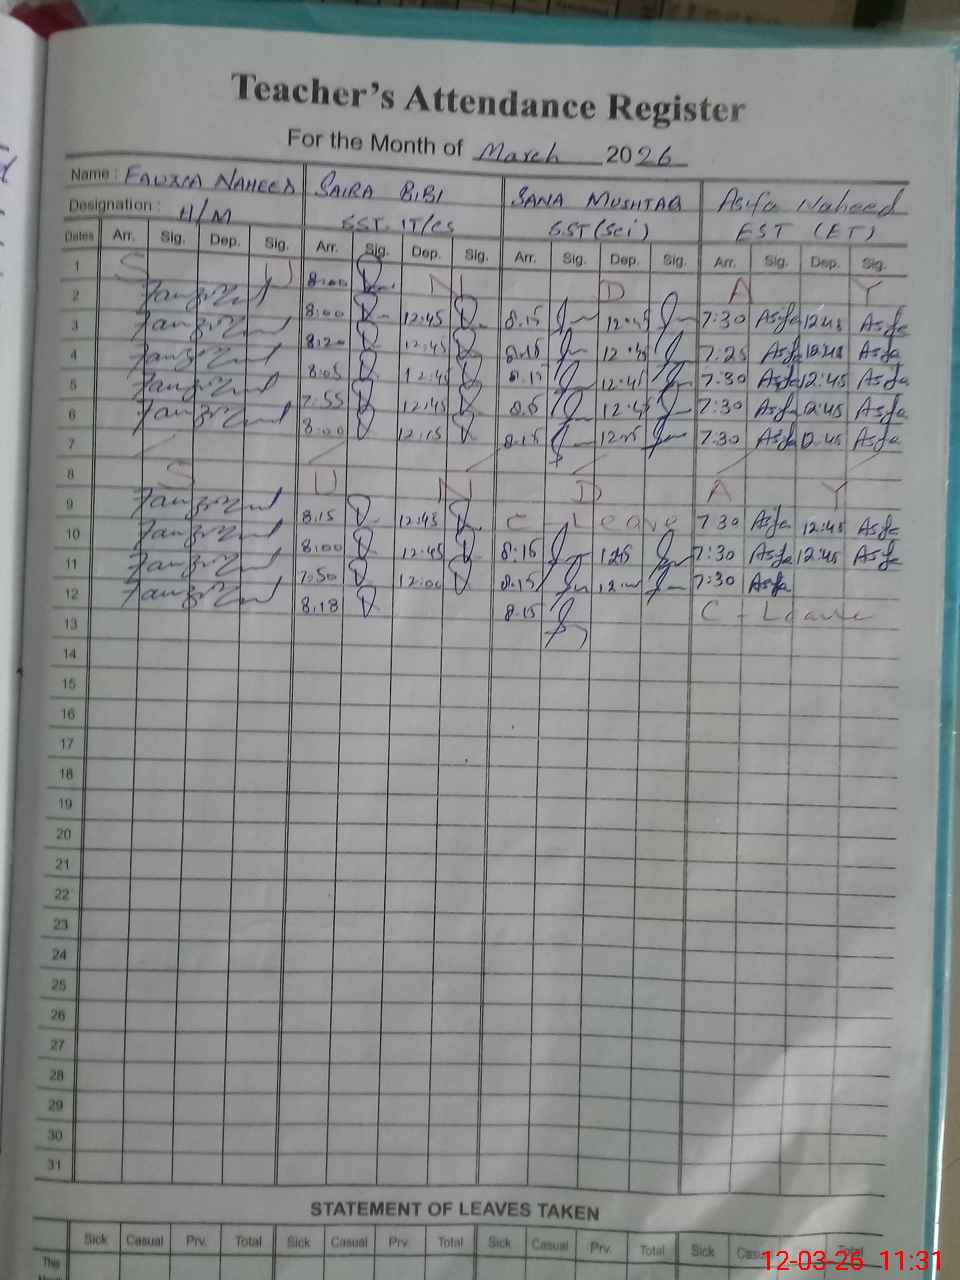 Teacher's Attendance Register
For the Month of March 2026
Name : FAUZIA NAHEED SAIRA BIBI SANA MUSHTAQ Asifa Naheed
Designation : H/M SST. IT/CS S.ST (Sci) EST (ET)
Dates Arr. Sig. Dep. Sig. Arr. Sig. Dep. Sig. Arr. Sig. Dep. Sig. Arr. Sig. Dep. Sig.
1 S U N D A Y
2 8:00
3 8:00 12:45 8.15 12:45 7:30 Asifa 12:45 Asifa
4 8:20 12:45 8.15 12:45 7:25 Asifa Asifa
5 8:05 12:45 8.15 12:45 7:30 Asifa 12:45 Asifa
6 7:55 12:45 12:45 7:30 Asifa 12:45 Asifa
7 8:00 12:15 8.15 7:30 Asifa 12:45 Asifa
8 S U N D A Y
9 8.15 12:45 C - Leave 7 30 Asifa 12:45 Asifa
10 8:00 12:45 8:15 7:30 Asifa 12:45 Asifa
11 7:50 12:00 8:15 7:30 Asifa
12 8:18 8:15 C - Leave
13
14
15
16
17
18
19
20
21
22
23
24
25
26
27
28
29
30
31
STATEMENT OF LEAVES TAKEN
Sick Casual Prv. Total Sick Casual Prv. Total Sick Casual Prv. Total Sick Total
This
12-03-26 11:31